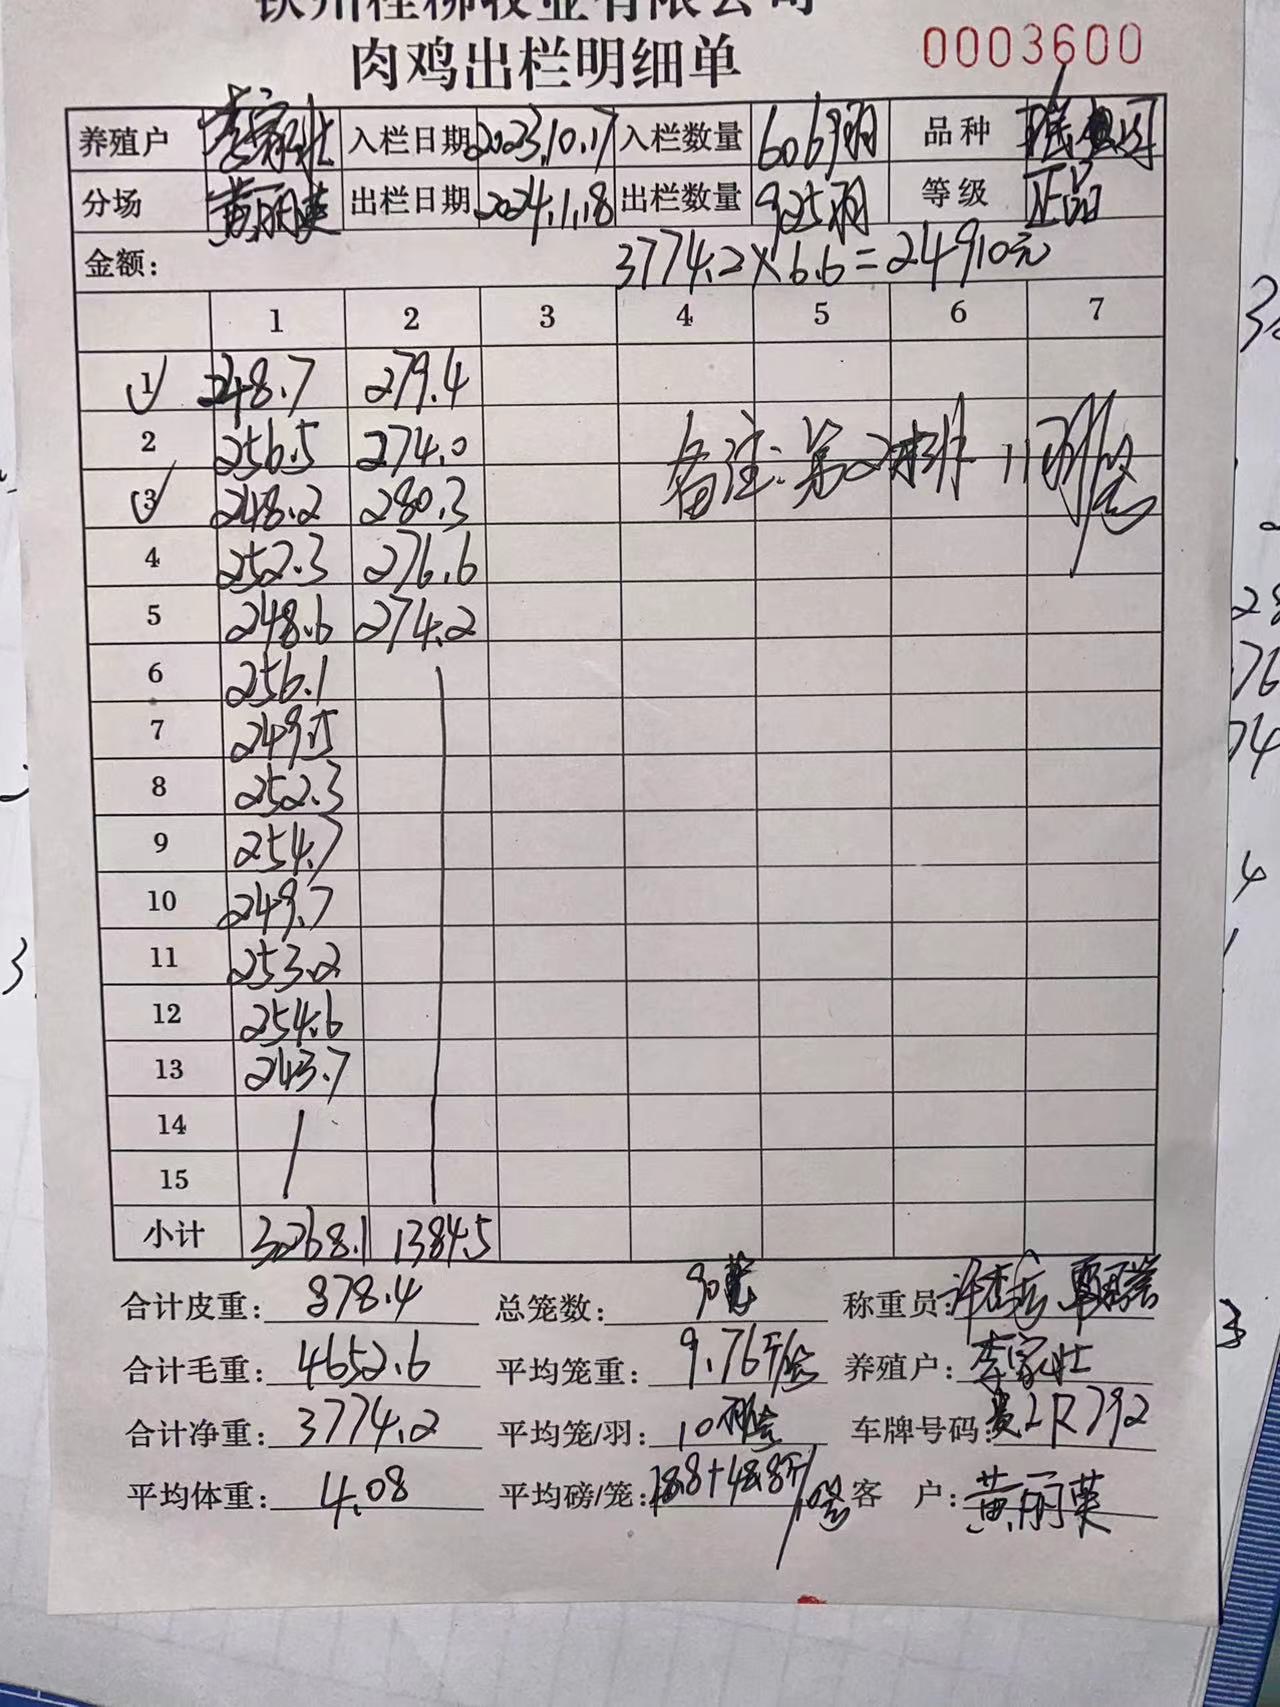 钦州桂柳牧业有限公司
肉鸡出栏明细单
0003600
养殖户 李家壮 入栏日期 2023.10.17 入栏数量 6069羽 品种
分场 黄丽英 出栏日期 2024.1.18 出栏数量 925羽 等级 正品
金额: 3774.2×6.6=24910元
1 2 3 4 5 6 7
1 248.7 279.4
2 256.5 274.0
3 248.2 280.3
备注:第2排11羽/笼
4 252.3 276.6
5 248.6 274.2
6 256.1
7 249.5
8 252.3
9 254.7
10 249.7
11 253.2
12 254.6
13 243.7
14
15
小计 3268.1 1384.5
合计皮重: 878.4 总笼数: 90笼 称重员:
合计毛重: 4652.6 平均笼重: 9.76斤/笼 养殖户: 李家壮
合计净重: 3774.2 平均笼/羽: 10羽/笼 车牌号码: 贵LR792
平均体重: 4.08 平均磅/笼: 48.8斤/笼 客 户: 黄丽英